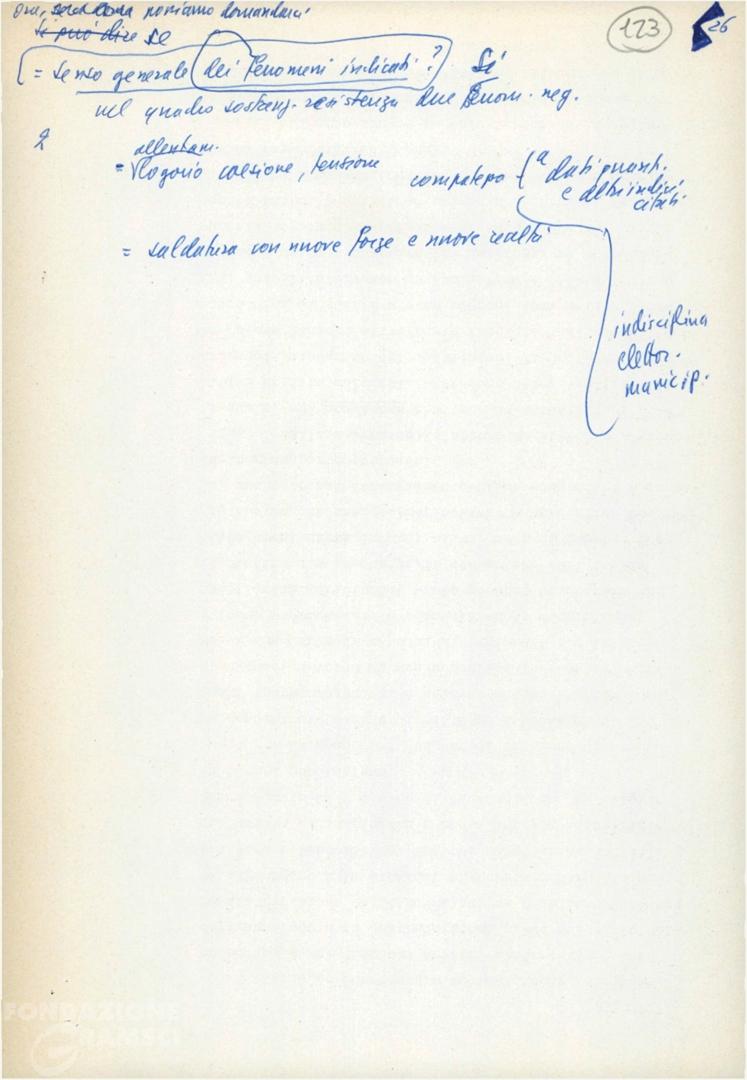 ora, poniamo domandarci
si può dire se
= senso generale dei fenomeni indicati? Sì
nel quadro sostanz. resistenza due fenom. neg.
2
allentam.
= logorio coesione, tensione
comprateso { a dati quant.
e altri indici
citati.
= saldatura con nuove forze e nuove realtà
indisciplina
elettor.
municip.
123
26
FONDAZIONE
GRAMSCI